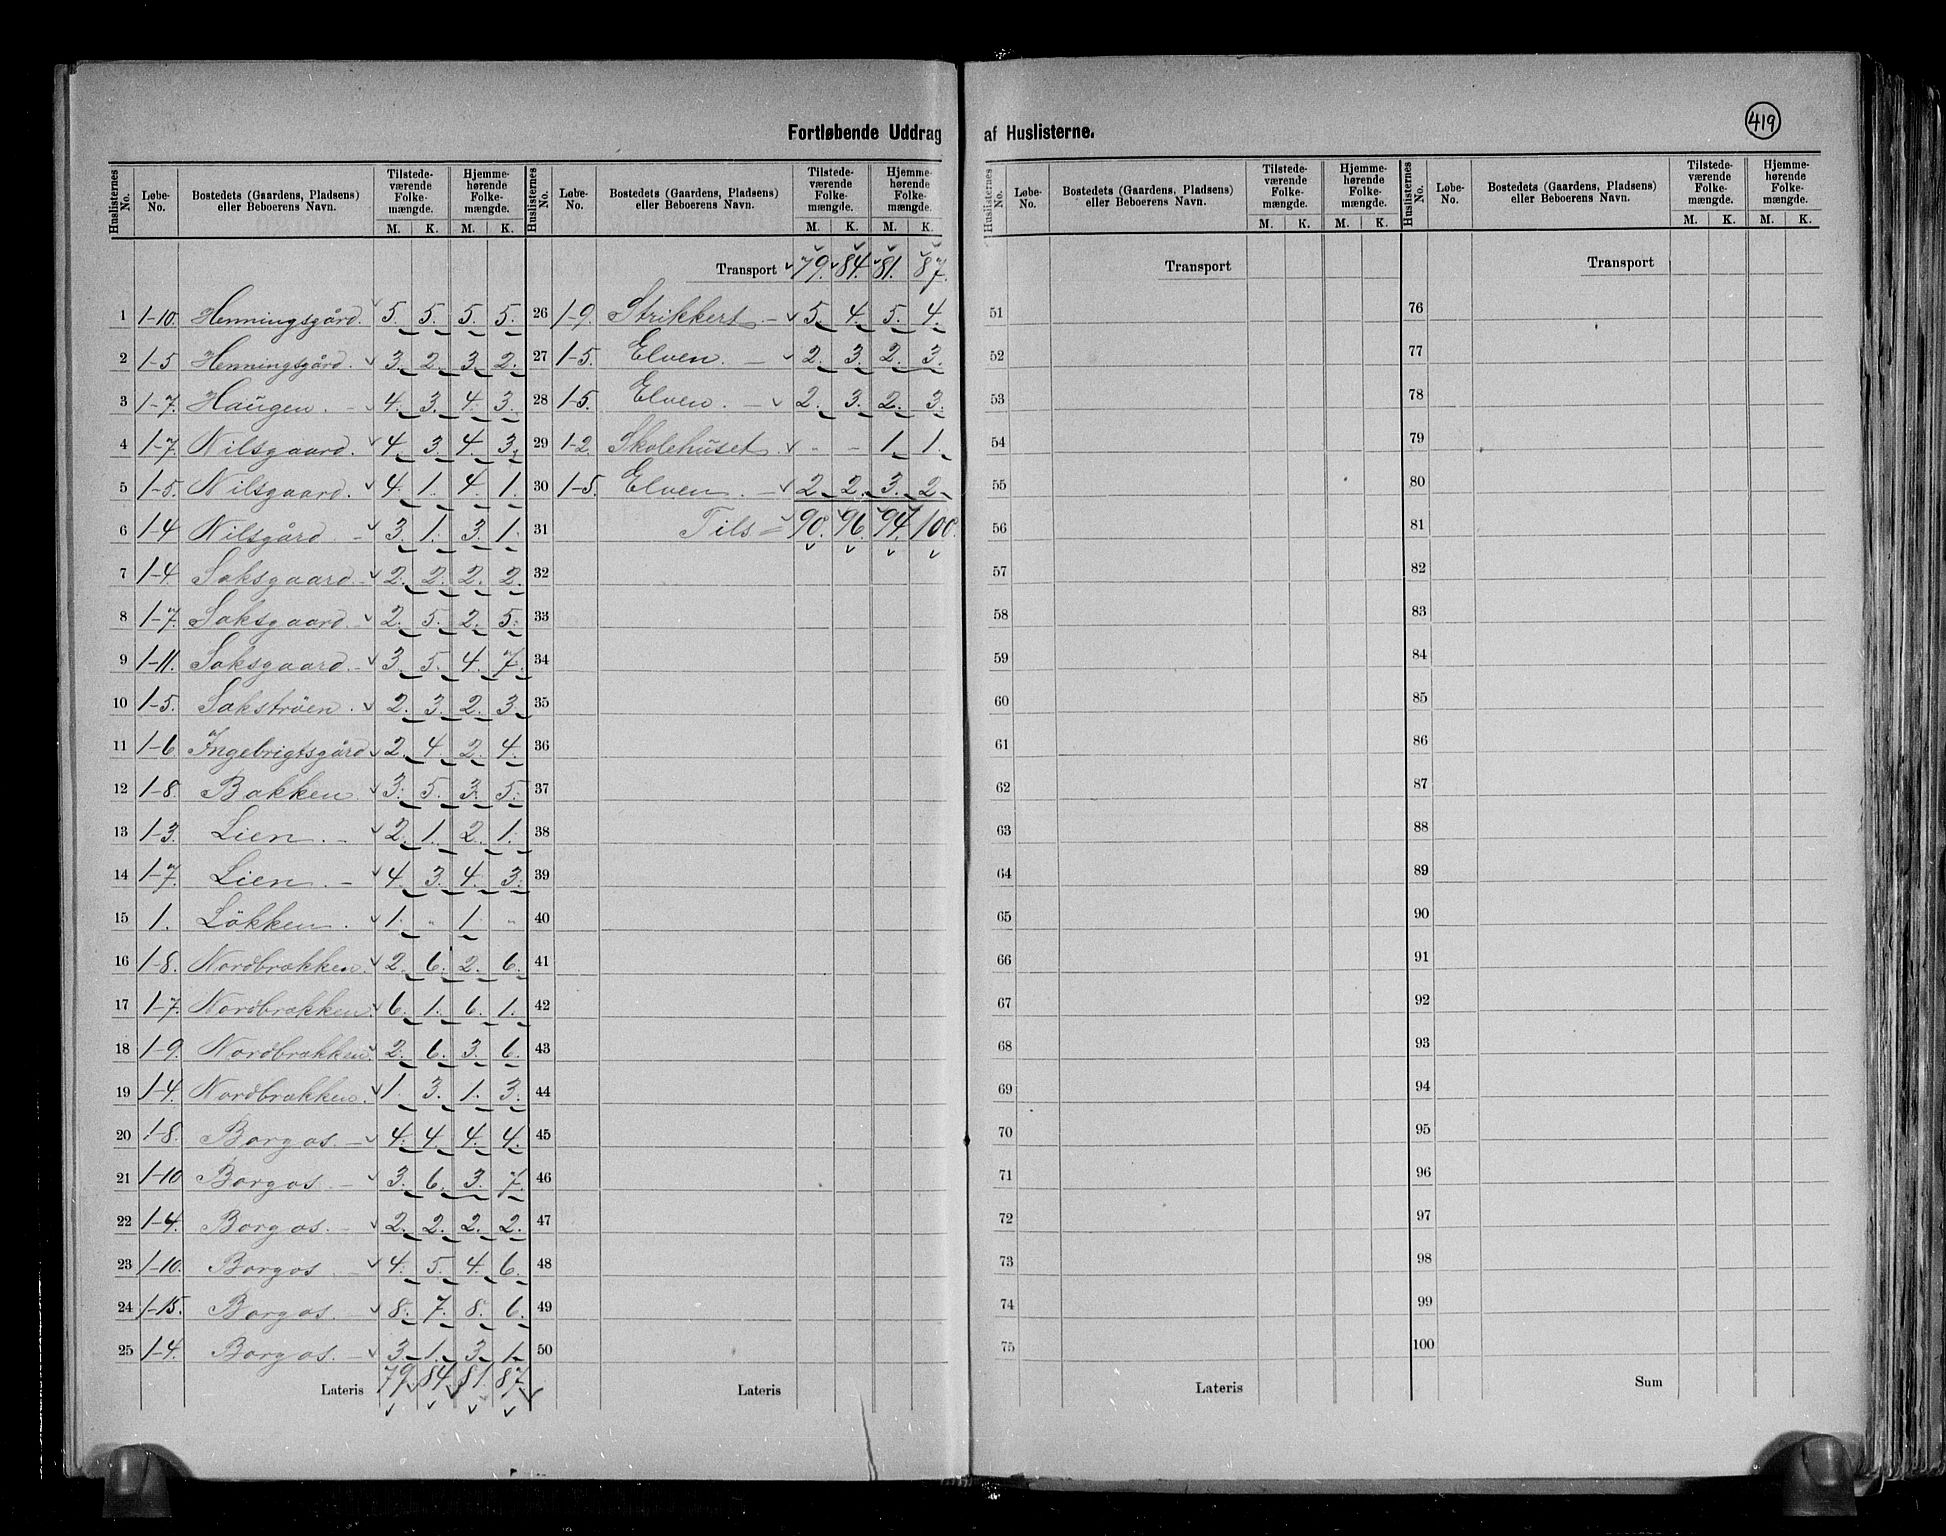 Fortløbende Uddrag af Huslisterne.
419
Huslisternes No. | Løbe-No. | Bostedets (Gaardens, Pladsens) eller Beboerens Navn. | Tilstede-værende Folke-mængde. M. K. | Hjemme-hørende Folke-mængde. M. K.
1 1-10. Henningsgård. 5. 5. 5. 5.
2 1-5 Henningsgård. 3. 2. 3. 2.
3 1-7. Haugen. - 4. 3. 4. 3.
4 1-7. Nilsgaard. 4. 3. 4. 3.
5 1-5. Nilsgaard. 4. 1. 4. 1.
6 1-4 Nilsgård - 3. 1. 3. 1.
7 1-4. Saksgaard. 2. 2. 2. 2.
8 1-7. Saksgaard. 2. 5. 2. 5.
9 1-11. Saksgaard. 3. 5. 4. 7.
10 1-5. Sakströen. 2. 3. 2. 3.
11 1-6 Ingebrigtsgård 2. 4. 2. 4.
12 1-8. Bakken. 3. 5. 3. 5.
13 1-3. Lien. - 2. 1. 2. 1.
14 1-7. Lien. - 4. 3. 4. 3.
15 1. Lökken. 1. " 1. "
16 1-8. Nordbrækken. 2. 6. 2. 6.
17 1-7. Nordbrækken. 6. 1. 6. 1.
18 1-9. Nordbrækken. 2. 6. 3. 6.
19 1-4. Nordbrækken. 1. 3. 1. 3.
20 1-8. Borgos. - 4. 4. 4. 4.
21 1-10 Borgos. - 3. 6. 3. 7.
22 1-4. Borgos. - 2. 2. 2. 2.
23 1-10. Borgos - 4. 5. 4. 6.
24 1-15. Borgos. 8. 7. 8. 6.
25 1-4. Borgos. - 3. 1. 3. 1.
Lateris 79. 84. 81. 87.
Huslisternes No. | Løbe-No. | Bostedets (Gaardens, Pladsens) eller Beboerens Navn. | Tilstede-værende Folke-mængde. M. K. | Hjemme-hørende Folke-mængde. M. K.
Transport 79. 84. 81. 87.
26 1-9. Strikkert. - 5. 4. 5. 4.
27 1-5. Elven. - 2. 3. 2. 3.
28 1-5. Elven. - 2. 3. 2. 3.
29 1-2. Skolehuset. - - 1. 1.
30 1-5. Elven. - 2. 2. 3. 2.
31 Tils = 90. 96. 94. 100.
32
33
34
35
36
37
38
39
40
41
42
43
44
45
46
47
48
49
50
Lateris
Huslisternes No. | Løbe-No. | Bostedets (Gaardens, Pladsens) eller Beboerens Navn. | Tilstede-værende Folke-mængde. M. K. | Hjemme-hørende Folke-mængde. M. K.
Transport
51
52
53
54
55
56
57
58
59
60
61
62
63
64
65
66
67
68
69
70
71
72
73
74
75
Lateris
Huslisternes No. | Løbe-No. | Bostedets (Gaardens, Pladsens) eller Beboerens Navn. | Tilstede-værende Folke-mængde. M. K. | Hjemme-hørende Folke-mængde. M. K.
Transport
76
77
78
79
80
81
82
83
84
85
86
87
88
89
90
91
92
93
94
95
96
97
98
99
100
Sum